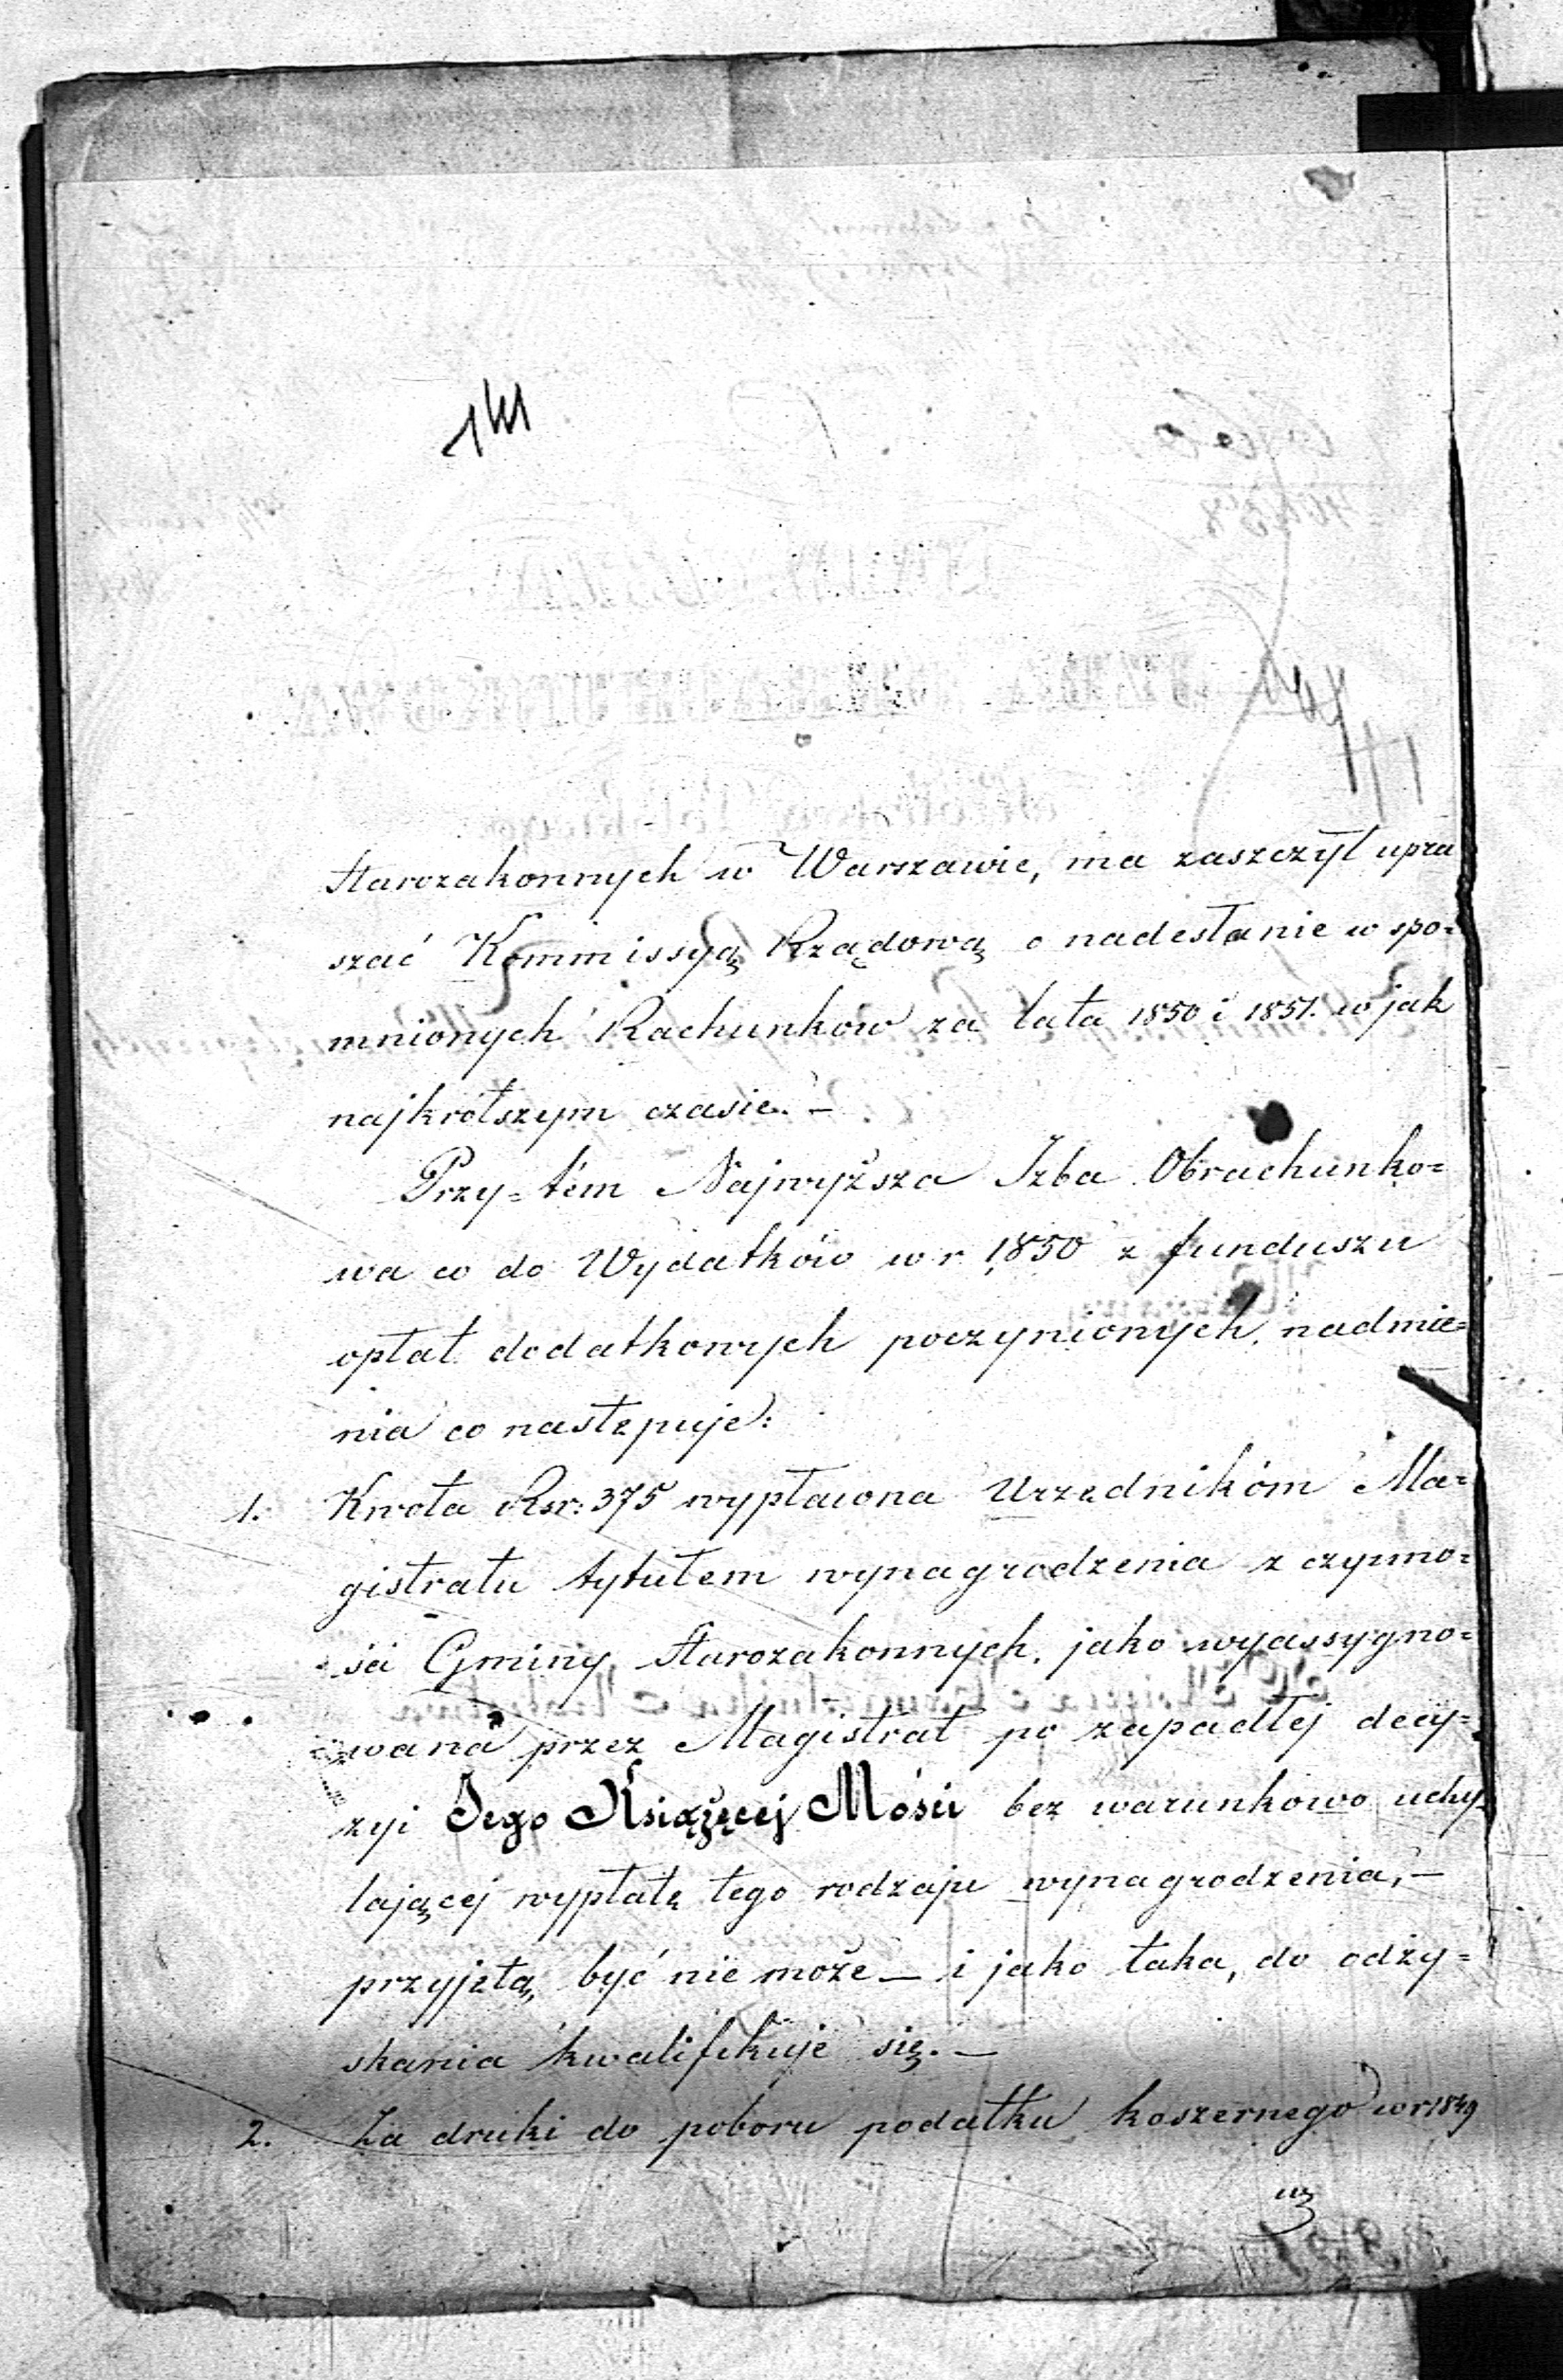 Starozakonnych w Warszawie, ma zaszczyt upra
szać Kommissyą Rządową o nadesłanie wspo=
mnionych Rachunków za lata 1850 i 1851. w jak
najkrótszym czasie. –
Przy=tém Najwyższa Izba Obrachunko=
wa co do Wydatków w r. 1850 z funduszu
opłat dodatkowych poczynionych, nadmie=
nia co następuje:
1. Kwota Rsr: 375 wypłacona Urzędnikóm Ma=
gistratu tytułem wynagrodzenia z czynno=
ści Gminy Starozakonnych, jako wyassygno=
wana przez Magistrat po zapadłej decy=
zyi Jego Książęcej Mości bez warunkowo uchy=
lającej wypłatę tego rodzaju wynagrodzenia, –
przyjętą być nie może – i jako taka, do odzy=
skania kwalifikuje się. –
2. Za druki do poboru podatku koszernego w r 1849